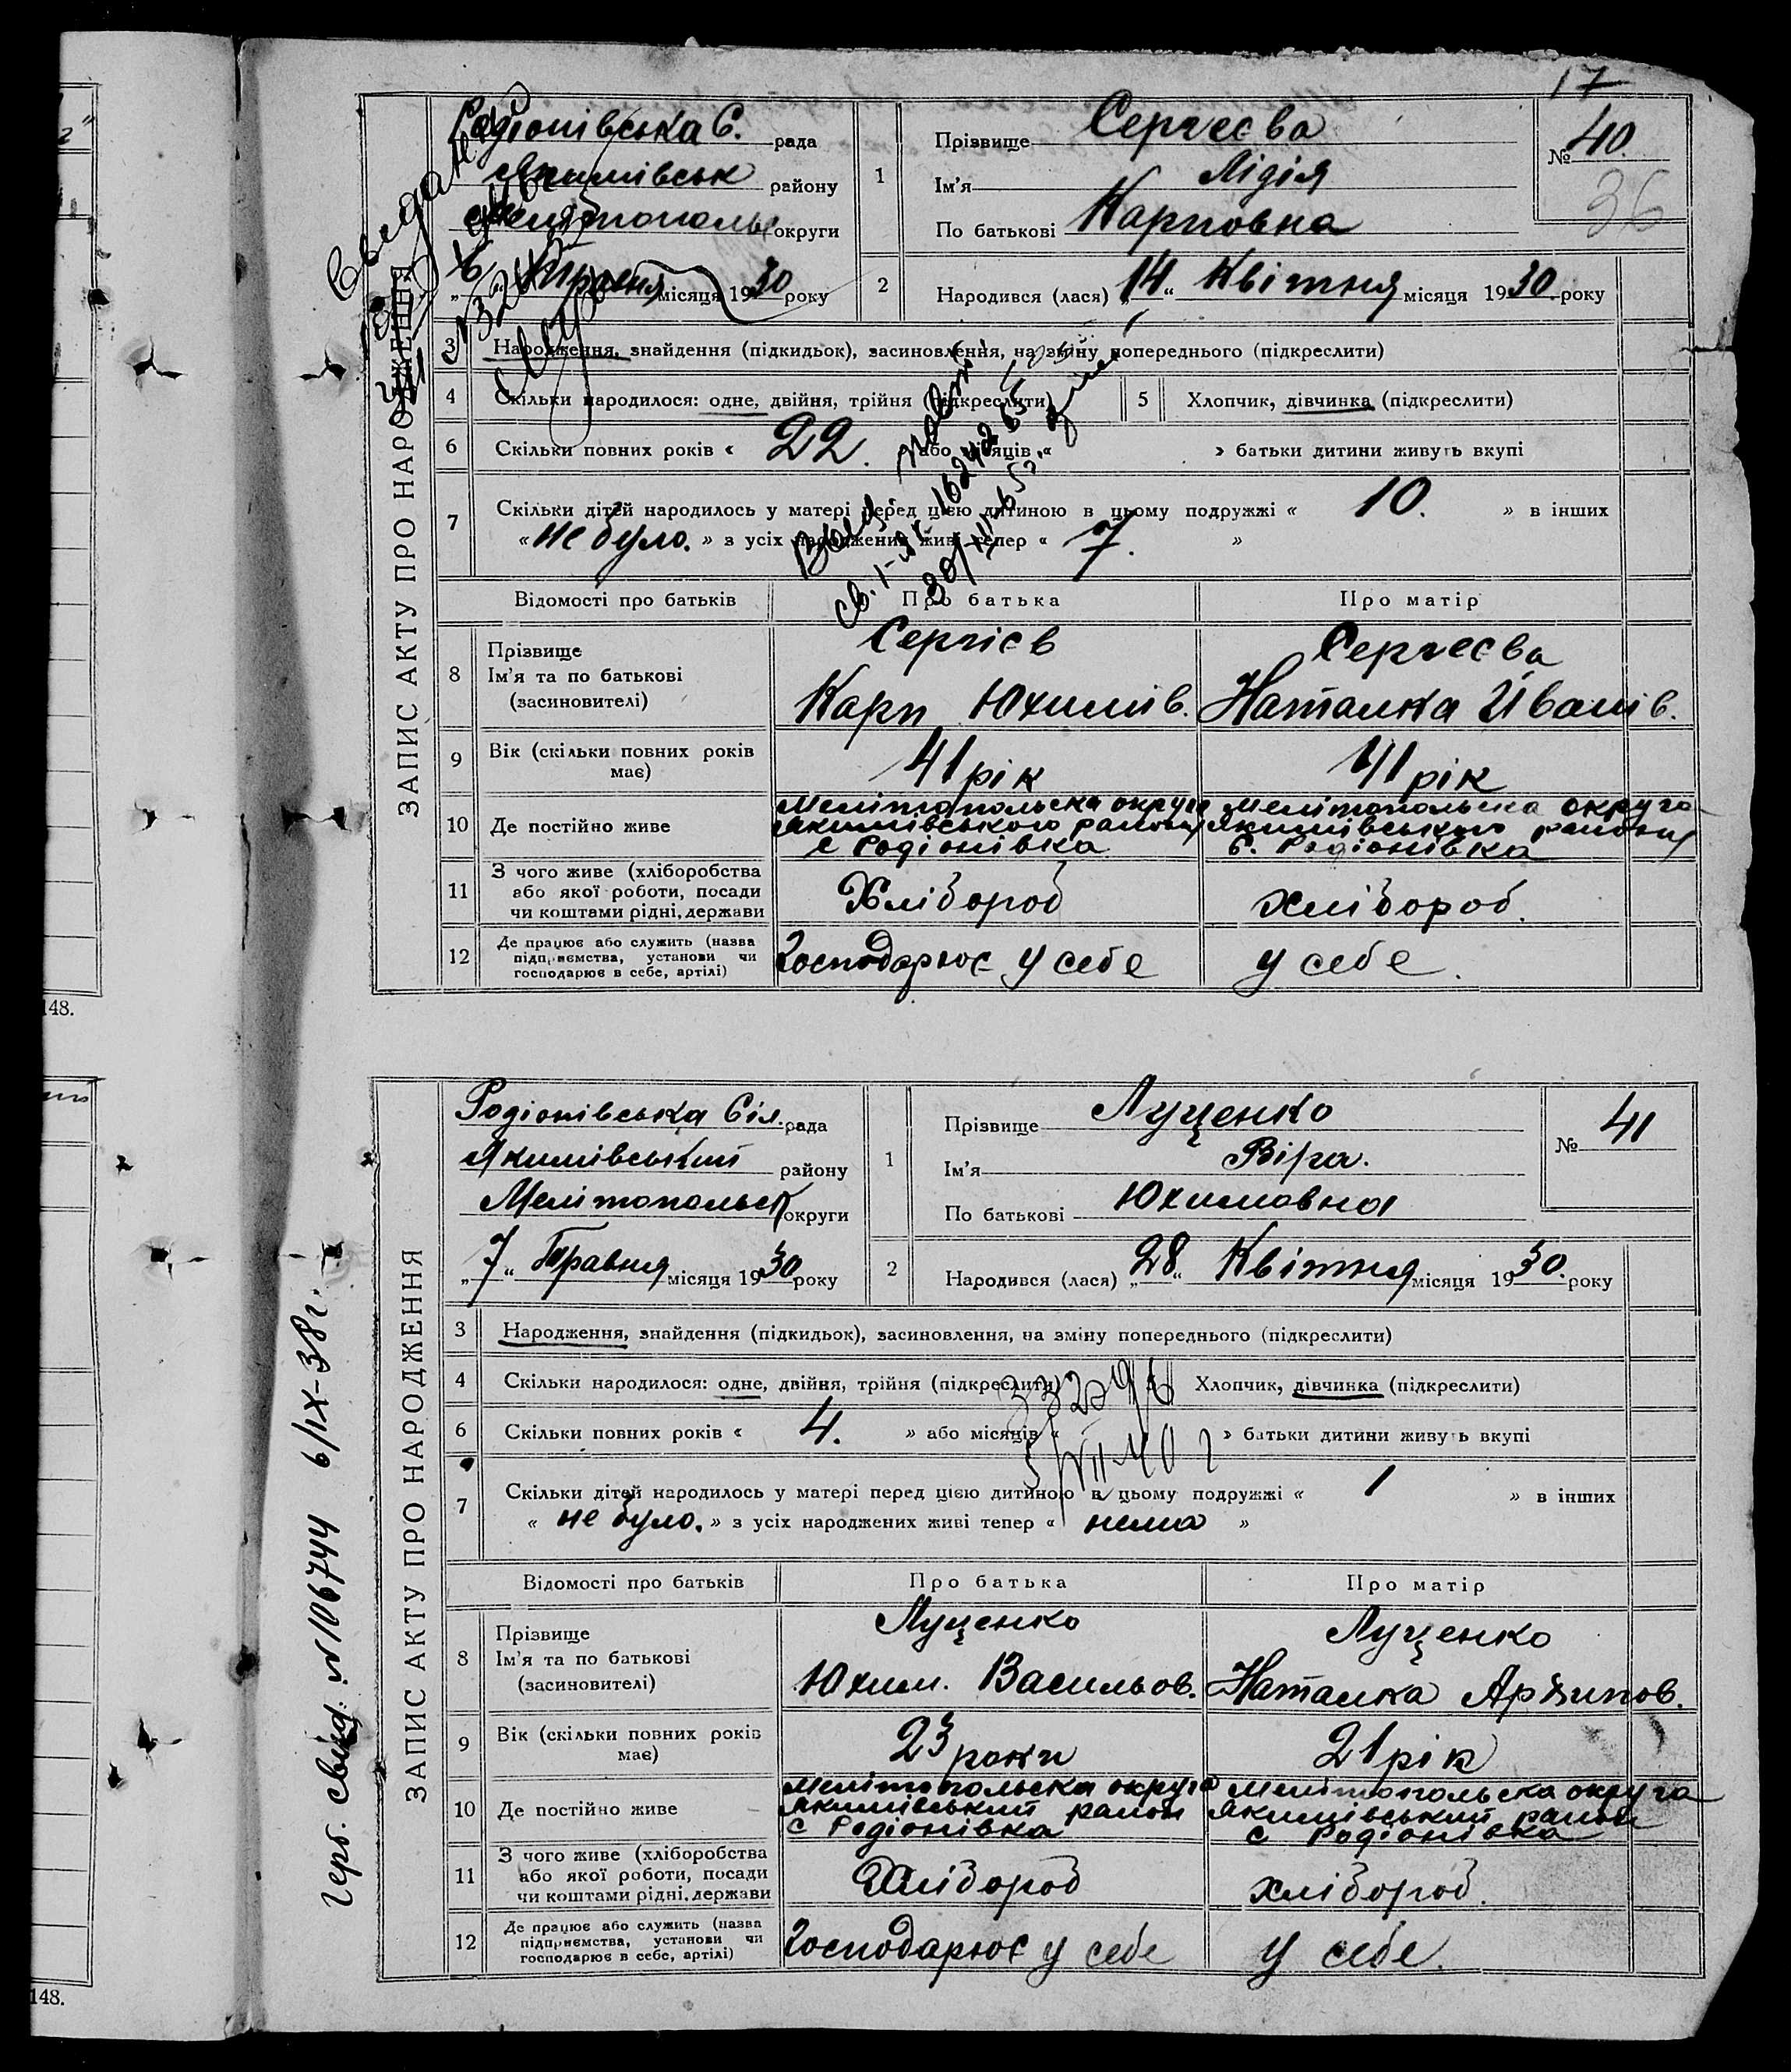 17
ЗАПИС АКТУ ПРО НАРОДЖЕННЯ
Родіонівська С. рада
Якимівськ району
Мелітополь округи
„6“ Травня місяця 1930 року
1
Прізвище Сергеєва
Ім'я Лідія
По батькові Карповна
№ 40.
36
2
Народився (лася) „14“ Квітня місяця 1930 року
3 Народження, знайдення (підкидьок), засиновлення, на зміну попереднього (підкреслити)
4 Скільки народилося: одне, двійня, трійня (підкреслити)
5 Хлопчик, дівчинка (підкреслити)
6 Скільки повних років « 22. або місяців « » батьки дитини живуть вкупі
7 Скільки дітей народилось у матері перед цією дитиною в цьому подружжі « 10. » в інших
« не було. » з усіх народжених живі тепер « 7. »
Відомості про батьків Про батька Про матір
8 Прізвище Сергієв Сергеєва
Ім'я та по батькові Карп Юхимів. Наталка Иванів.
(засиновителі)
9 Вік (скільки повних років має) 41 рік 41 рік
10 Де постійно живе
Мелітопольска округа Якимівського району с Родіонівка
Мелітопольска округа Якимівського району с. Родіонівка
11 З чого живе (хліборобства
або якої роботи, посади
чи коштами рідні, держави
Хлібороб хлібороб.
12 Де працює або служить (назва
підприємства, установи чи
господарює в себе, артілі)
Господарює у себе у себе.
148.
ЗАПИС АКТУ ПРО НАРОДЖЕННЯ
Герб. свід. №106744 6/IX-38г.
Родіонівська Сіл. рада
Якимівський району
Мелітопольськ округи
„7“ Травня місяця 1930 року
1
Прізвище Луценко
Ім'я Віра.
По батькові Юхимовна
№ 41
2
Народився (лася) „28“ Квітня місяця 1930. року
3 Народження, знайдення (підкидьок), засиновлення, на зміну попереднього (підкреслити)
4 Скільки народилося: одне, двійня, трійня (підкреслити)
Хлопчик, дівчинка (підкреслити)
6 Скільки повних років « 4. » або місяців « » батьки дитини живуть вкупі
7 Скільки дітей народилось у матері перед цією дитиною в цьому подружжі « 1 » в інших
« не було. » з усіх народжених живі тепер « нема »
Відомості про батьків Про батька Про матір
8 Прізвище Луценко Луценко
Ім'я та по батькові Юхим. Васильов. Наталка Архипов.
(засиновителі)
9 Вік (скільки повних років має) 23 роки 21 рік
10 Де постійно живе
Мелітопольска округа Якимівський район с Родіонівка
Мелітопольска округа Якимівський район с Родіонівка
11 З чого живе (хліборобства
або якої роботи, посади
чи коштами рідні, держави
Хлібороб хлібороб.
12 Де працює або служить (назва
підприємства, установи чи
господарює в себе, артілі)
Господарює у себе у себе.
148.